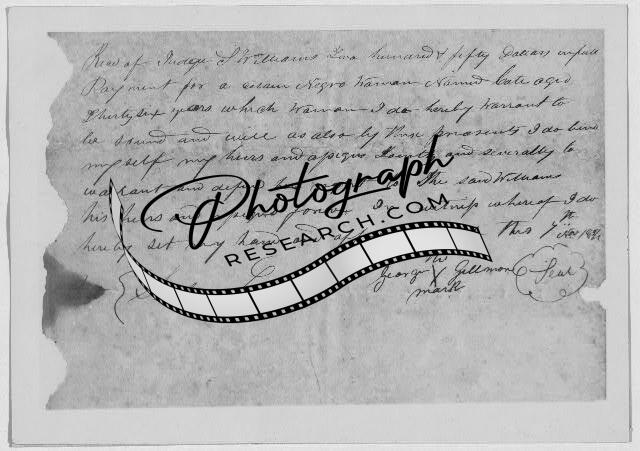 Recd of Judge S Williams Two hundred & fifty Dollars in full
Payment for a certain Negro Woman Named Cate aged
Thirty six years which Woman I do hereby Warrant to
be sound and well as also by these presents I do bind
my self my heirs and assigns and severally to
warrant and the said Williams
his heirs and where of I do
hereby set my hand and this 7th
George Gillmore Seal
mark
Photograph
RESEARCH.COM